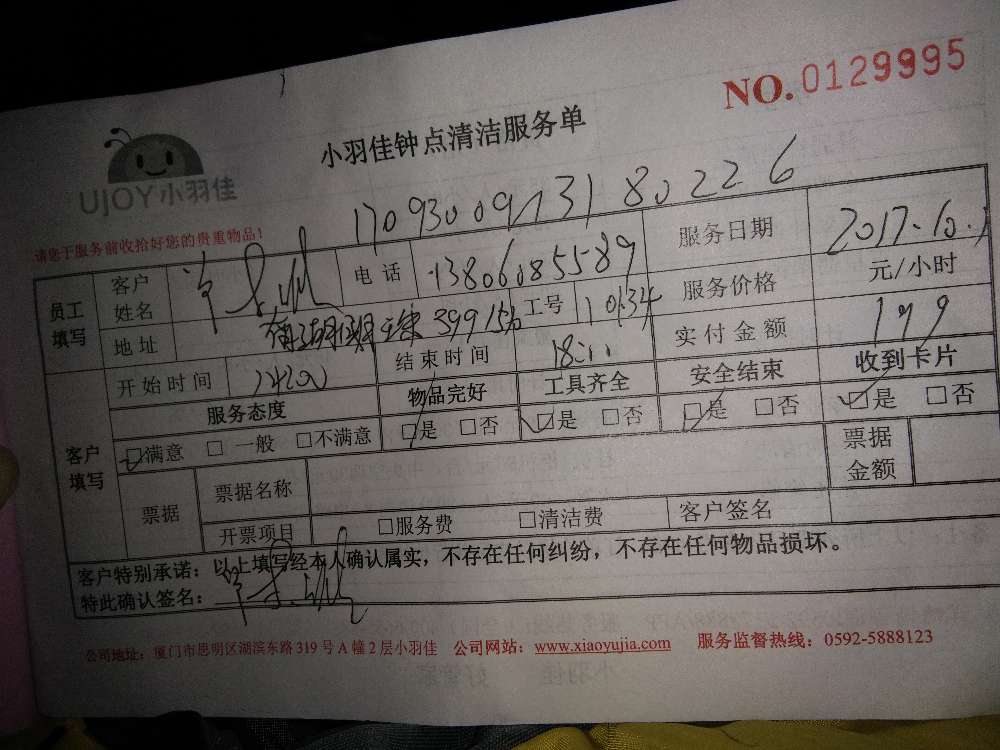 NO.0129995
小羽佳钟点清洁服务单
UJOY小羽佳
1709300913180226
请您于服务前收拾好您的贵重物品!
员工填写 客户姓名 电话 13806085589 服务日期 2017.10.1
地址 399 工号 110634 服务价格 元/小时
开始时间 结束时间 18:00 实付金额 199
客户填写 服务态度 物品完好 工具齐全 安全结束 收到卡片
□满意 □ 一般 □不满意 □是 □否 □是 □否 □是 □否 □是 □否
票据 票据名称 票据金额
开票项目 □服务费 □清洁费 客户签名
客户特别承诺：以上填写经本人确认属实，不存在任何纠纷，不存在任何物品损坏。
特此确认签名：
公司地址：厦门市思明区湖滨东路319号A幢2层小羽佳 公司网站：www.xiaoyujia.com 服务监督热线：0592-5888123